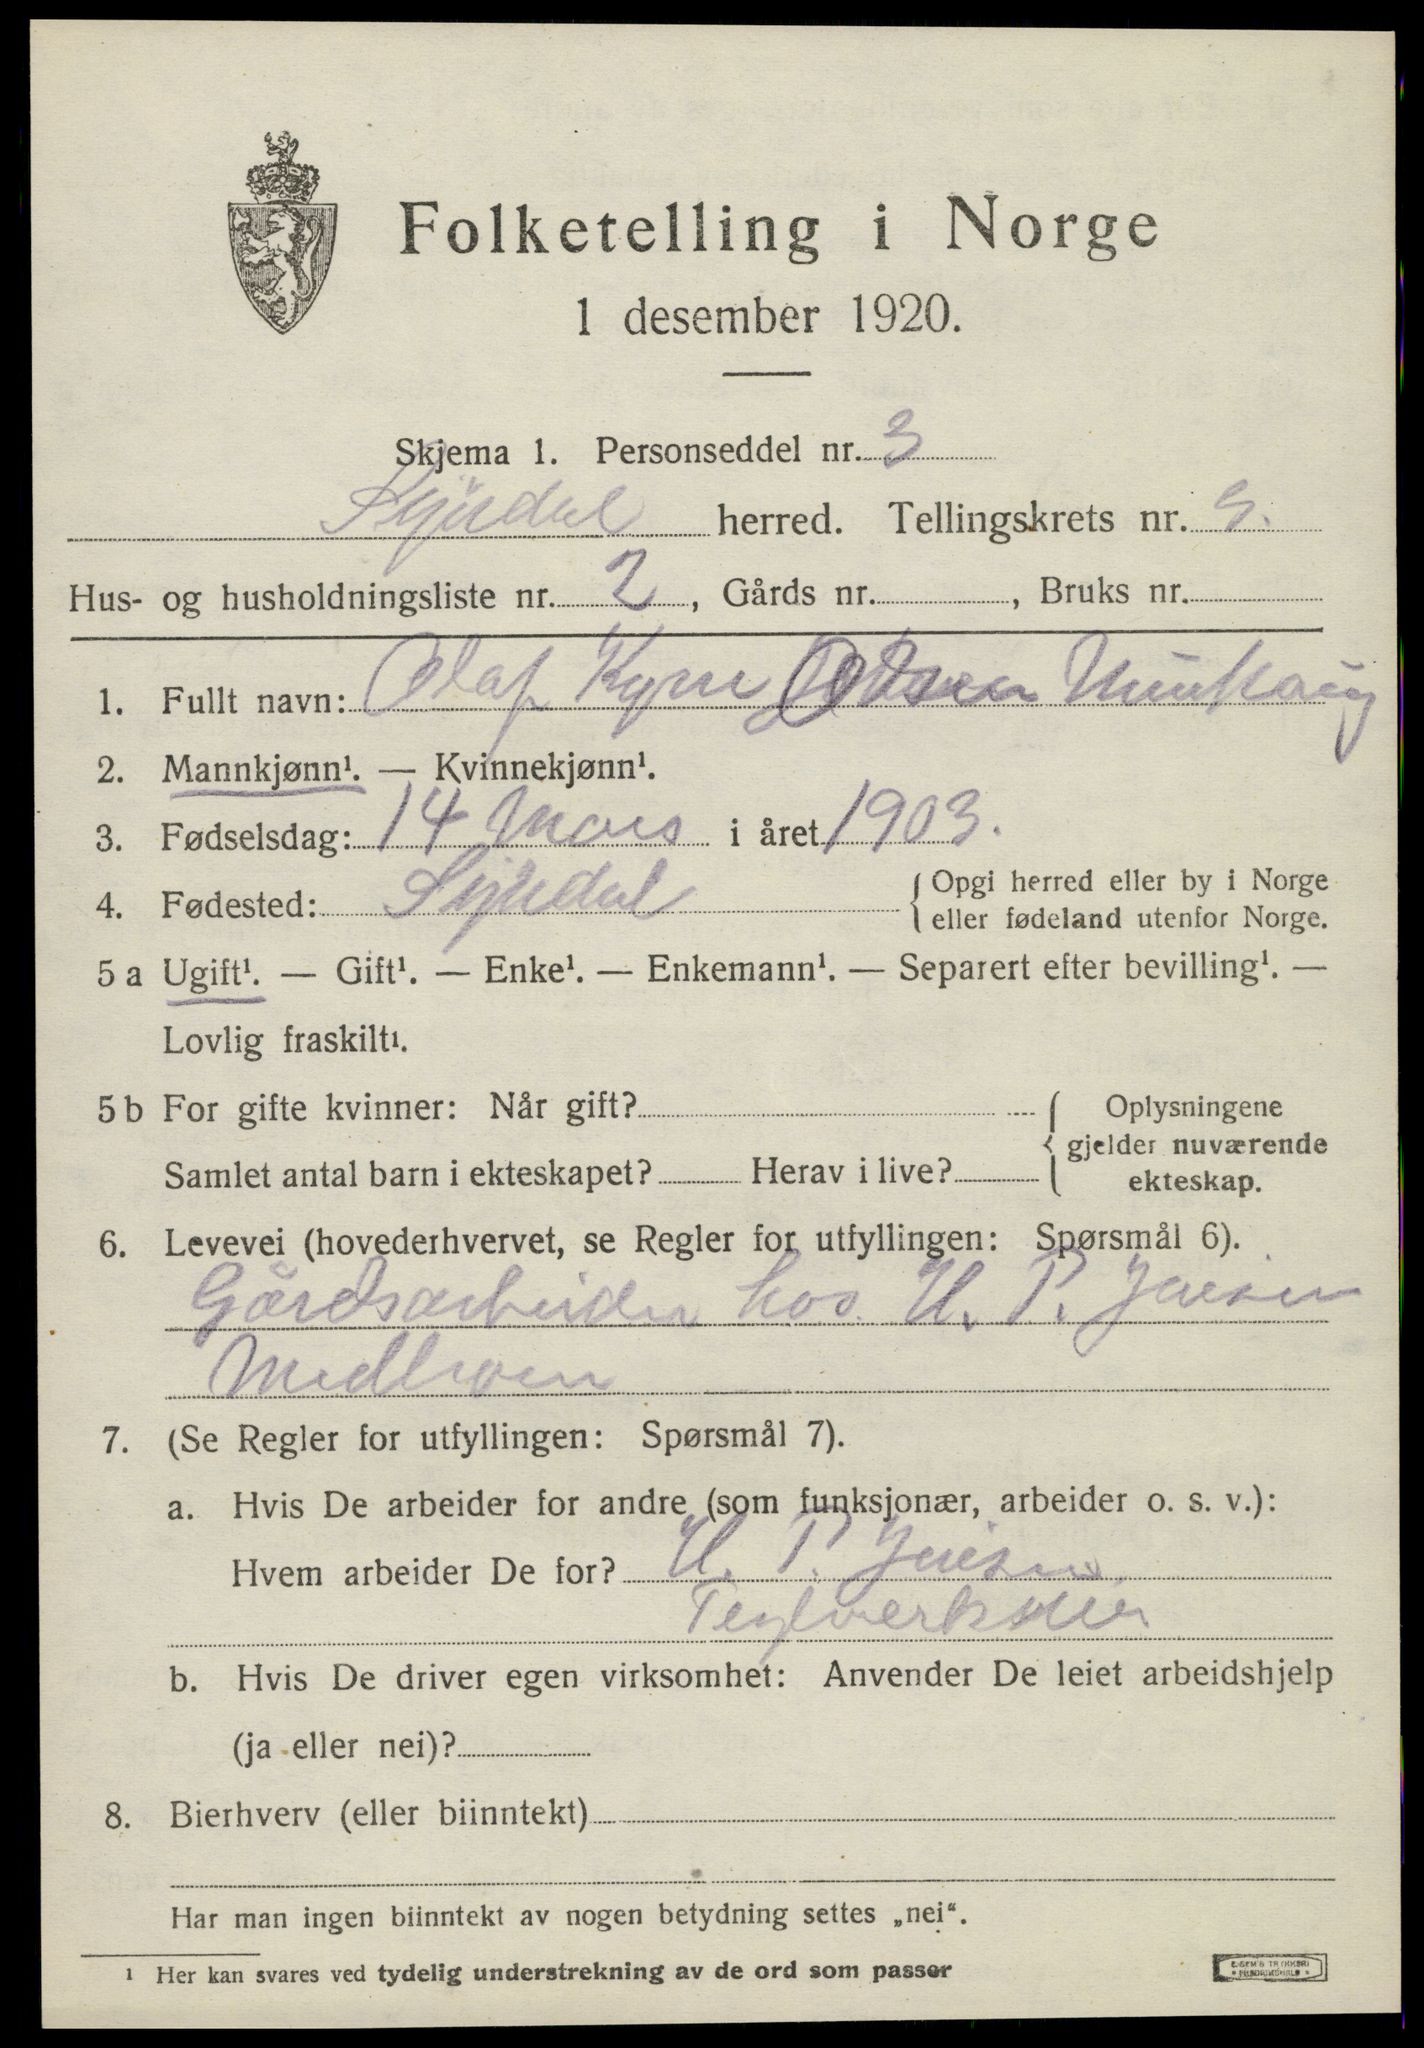 Folketelling i Norge
1 desember 1920.
Skjema 1. Personseddel nr. 3
herred. Tellingskrets nr.
Hus- og husholdningsliste nr. 2, Gårds nr. , Bruks nr.
1. Fullt navn: Olaf
2. Mannkjønn¹. — Kvinnekjønn¹.
3. Fødselsdag: 14 Mars i året 1903.
4. Fødested: Opgi herred eller by i Norge
eller fødeland utenfor Norge.
5 a Ugift¹. — Gift¹. — Enke¹. — Enkemann¹. — Separert efter bevilling¹. —
Lovlig fraskilt¹.
5 b For gifte kvinner: Når gift? Oplysningene
gjelder nuværende
Samlet antal barn i ekteskapet? Herav i live? ekteskap.
6. Levevei (hovederhvervet, se Regler for utfyllingen: Spørsmål 6).
Gårdsarbeider hos H. P.
7. (Se Regler for utfyllingen: Spørsmål 7).
a. Hvis De arbeider for andre (som funksjonær, arbeider o. s. v.):
Hvem arbeider De for? H. P.
Teglverkseier
b. Hvis De driver egen virksomhet: Anvender De leiet arbeidshjelp
(ja eller nei)?
8. Bierhverv (eller biinntekt)
Har man ingen biinntekt av nogen betydning settes „nei“.
¹ Her kan svares ved tydelig understrekning av de ord som passer